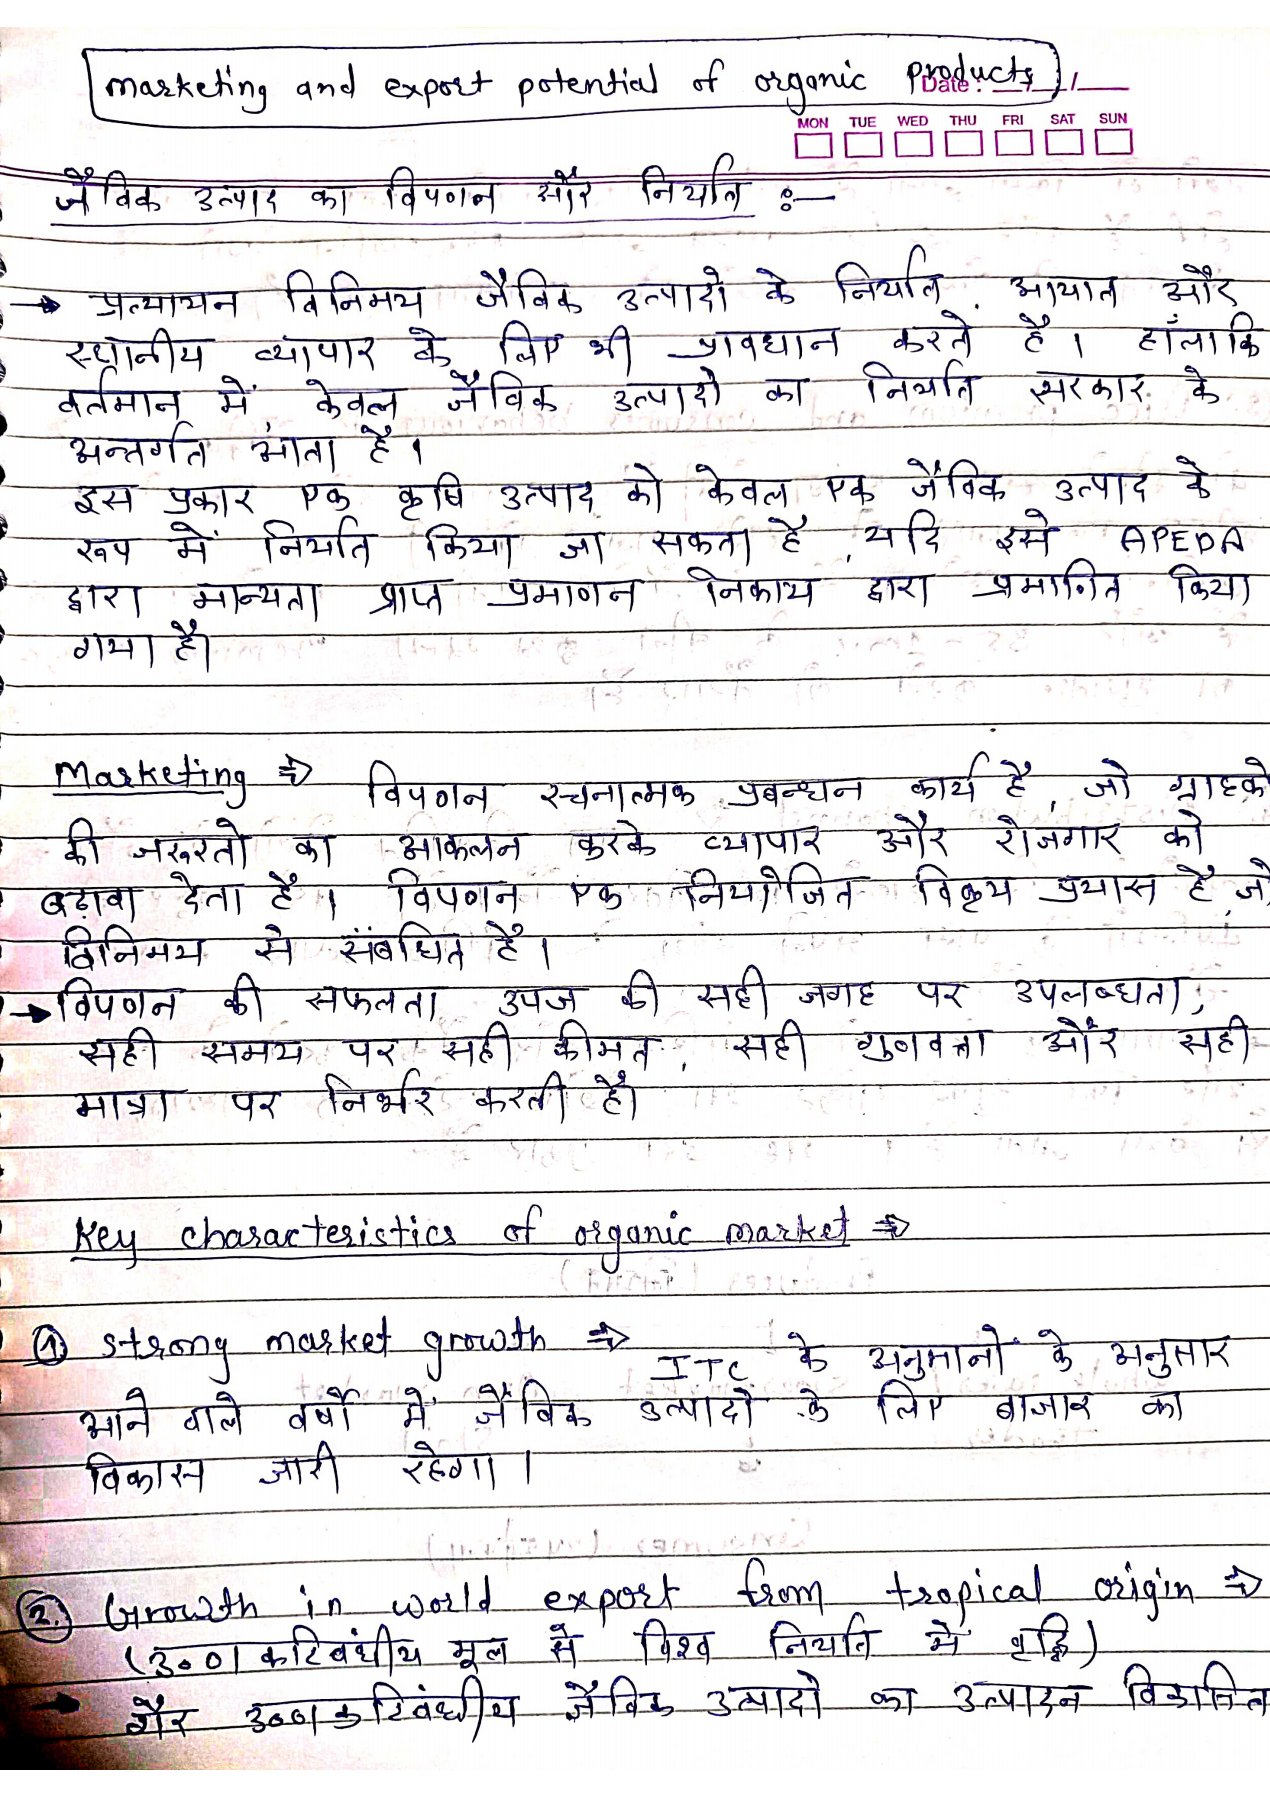 marketing and export potential of organic products
Date : / /
MON TUE WED THU FRI SAT SUN
जैविक उत्पाद का विपणन और निर्यात :—
→ प्रत्यायन विनिमय जैविक उत्पादो के निर्यात, आयात और
स्थानीय व्यापार के लिए भी प्रावधान करते है । हाँलाकि
वर्तमान में केवल जैविक उत्पादो का निर्यात सरकार के
अन्तर्गत आता है ।
इस प्रकार एक कृषि उत्पाद को केवल एक जैविक उत्पाद के
रूप में निर्यात किया जा सकता है, यदि इसे APEDA
द्वारा मान्यता प्राप्त प्रमाणन निकाय द्वारा प्रमाणित किया
गया है।
Marketing ⇒ विपणन रचनात्मक प्रबन्धन कार्य है, जो ग्राहको
की जरूरतो का आकलन करके व्यापार और रोजगार को
बढ़ावा देता है । विपणन एक नियोजित विक्रय प्रयास है, जो
विनिमय से संबधित है ।
→ विपणन की सफलता उपज की सही जगह पर उपलब्धता,
सही समय पर सही कीमत, सही गुणवत्ता और सही
मात्रा पर निर्भर करती है।
Key characteristics of organic market ⇒
① strong market growth ⇒ ITC के अनुमानों के अनुसार
आने वाले वर्षो में जैविक उत्पादों के लिए बाजार का
विकास जारी रहेगा ।
②. Growth in world export from tropical origin ⇒
(उष्ण कटिबंधीय मूल से विश्व निर्यात मे वृद्धि)
→ गैर उष्ण कटिबंधीय जैविक उत्पादो का उत्पादन विकसित